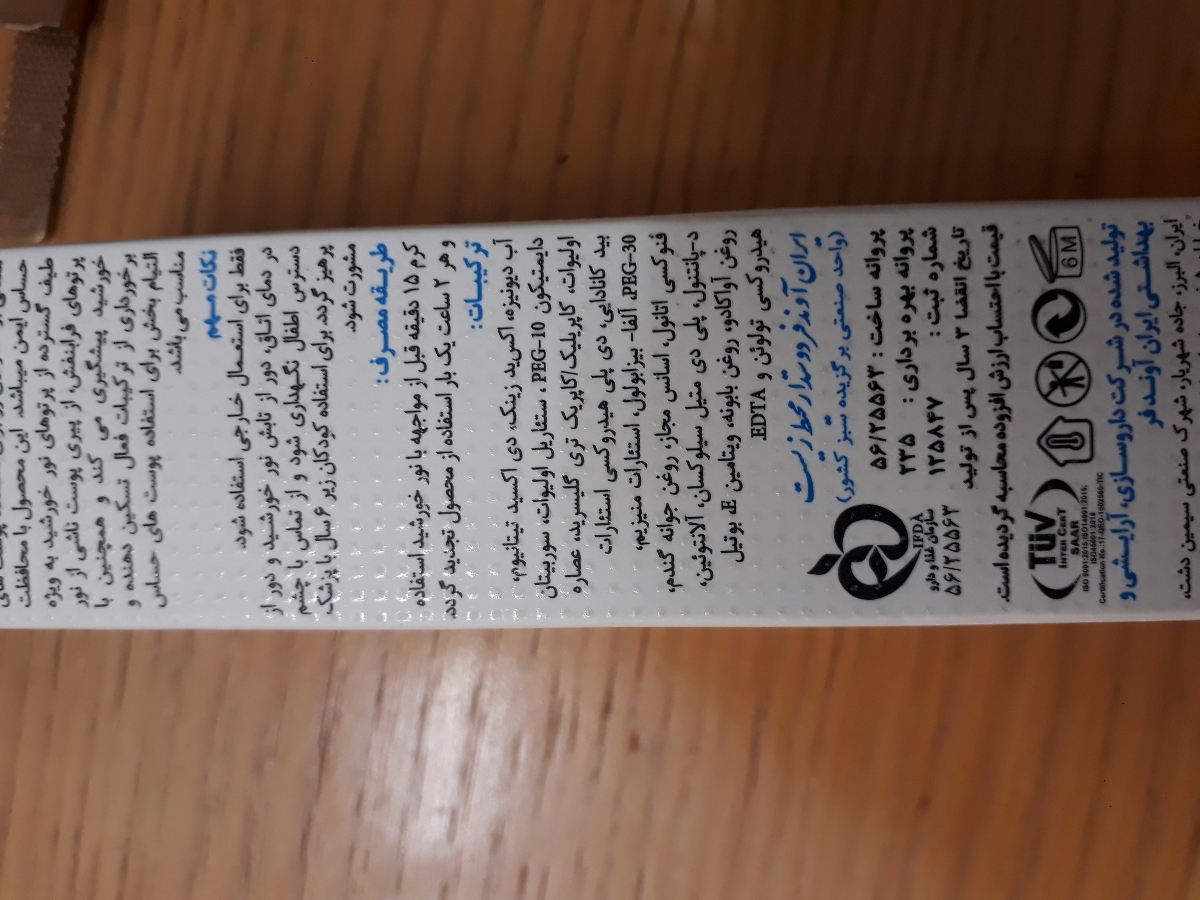 حساس ایمن میباشد. این محصول با محافظت
طیف گسترده از پرتوهای نور خورشید به ویژه
پرتوهای فرابنفش، از پیری پوست ناشی از نور
خورشید پیشگیری می کند و همچنین با
برخورداری از ترکیبات فعال تسکین دهنده و
التیام بخش برای استفاده پوست های حساس
مناسب می باشد.
نکات مهم
فقط برای استعمال خارجی استفاده شود.
در دمای اتاق، دور از تابش نور خورشید و دور از
دسترس اطفال نگهداری شود و از تماس با چشم
پرهیز گردد. برای استفاده کودکان زیر ۶ سال با پزشک
مشورت شود.
طریقه مصرف:
کرم ۱۵ دقیقه قبل از مواجهه با نور خورشید استفاده
و هر ۲ ساعت یک بار استفاده از محصول تجدید گردد.
ترکیبات:
آب دیونیزه، اکسید زینک، دی اکسید تیتانیوم،
دایمتیکون PEG-10، ستئاریل اولیوات، سوربیتان
اولیوات، کاپریلیک/کاپریک تری گلیسرید، عصاره
بید کانادایی، دی پلی هیدروکسی استئارات
PEG-30، آلفا- بیزابولول، استئارات منیزیم،
فنوکسی اتانول، اسانس مجاز، روغن جوانه گندم،
د-پانتنول، پلی دی متیل سیلوکسان، آلانتوئین،
روغن آواکادو، روغن بابونه، ویتامین E، بوتیل
هیدروکسی تولوئن و EDTA
ایران آوندفر دوستدار محیط زیست
(واحد صنعتی برگزیده سبز کشور)
پروانه ساخت : ۵۶/۲۵۵۶۳
پروانه بهره برداری : ۲۳۵
شماره ثبت : ۱۲۵۸۴۷
تاریخ انقضا ۳ سال پس از تولید
IFDA
سازمان غذا و دارو
۵۶/۲۵۵۶۳
قیمت با احتساب ارزش افزوده محاسبه گردیده است.
6 M
TÜV
INTER CERT
SAAR
تولید شده در شرکت داروسازی، آرایشی و
بهداشتی ایران آوندفر
ایران، البرز، جاده شهریار، شهرک صنعتی سیمین دشت،